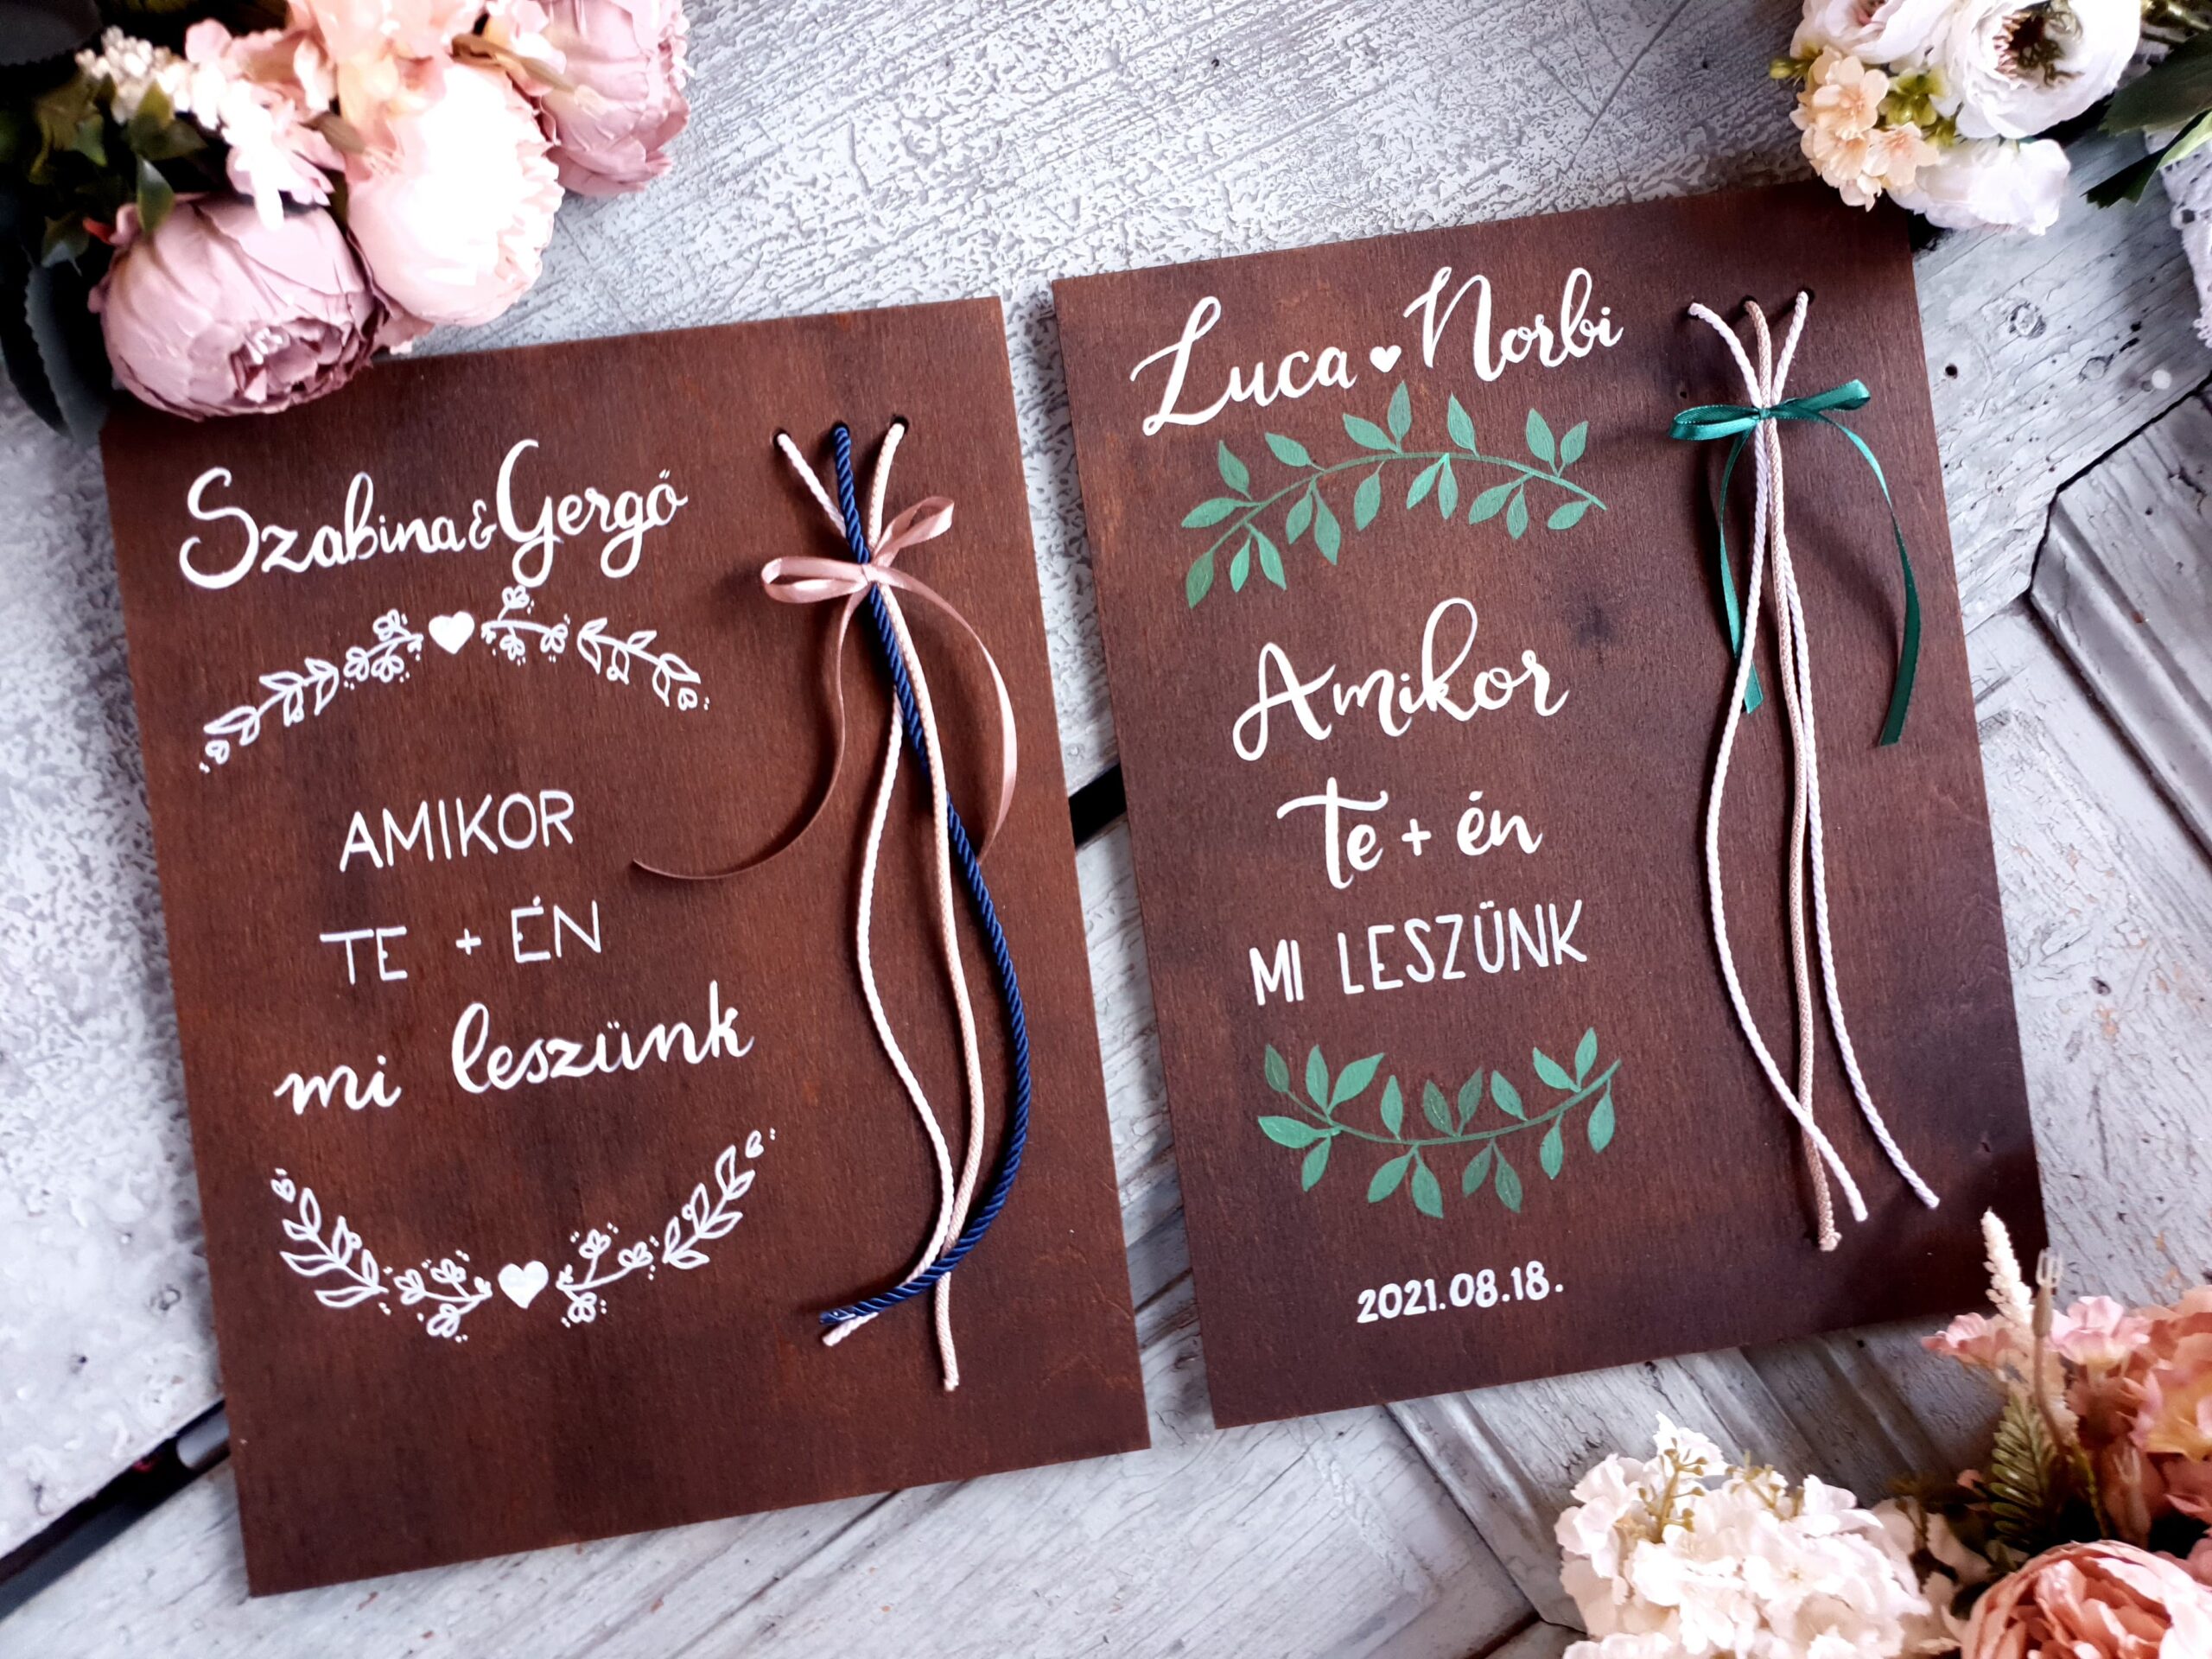 Szabina & Gergő
AMIKOR
TE + ÉN
mi leszünk
Luca ♥ Norbi
Amikor
Te + én
MI LESZÜNK
2021.08.18.